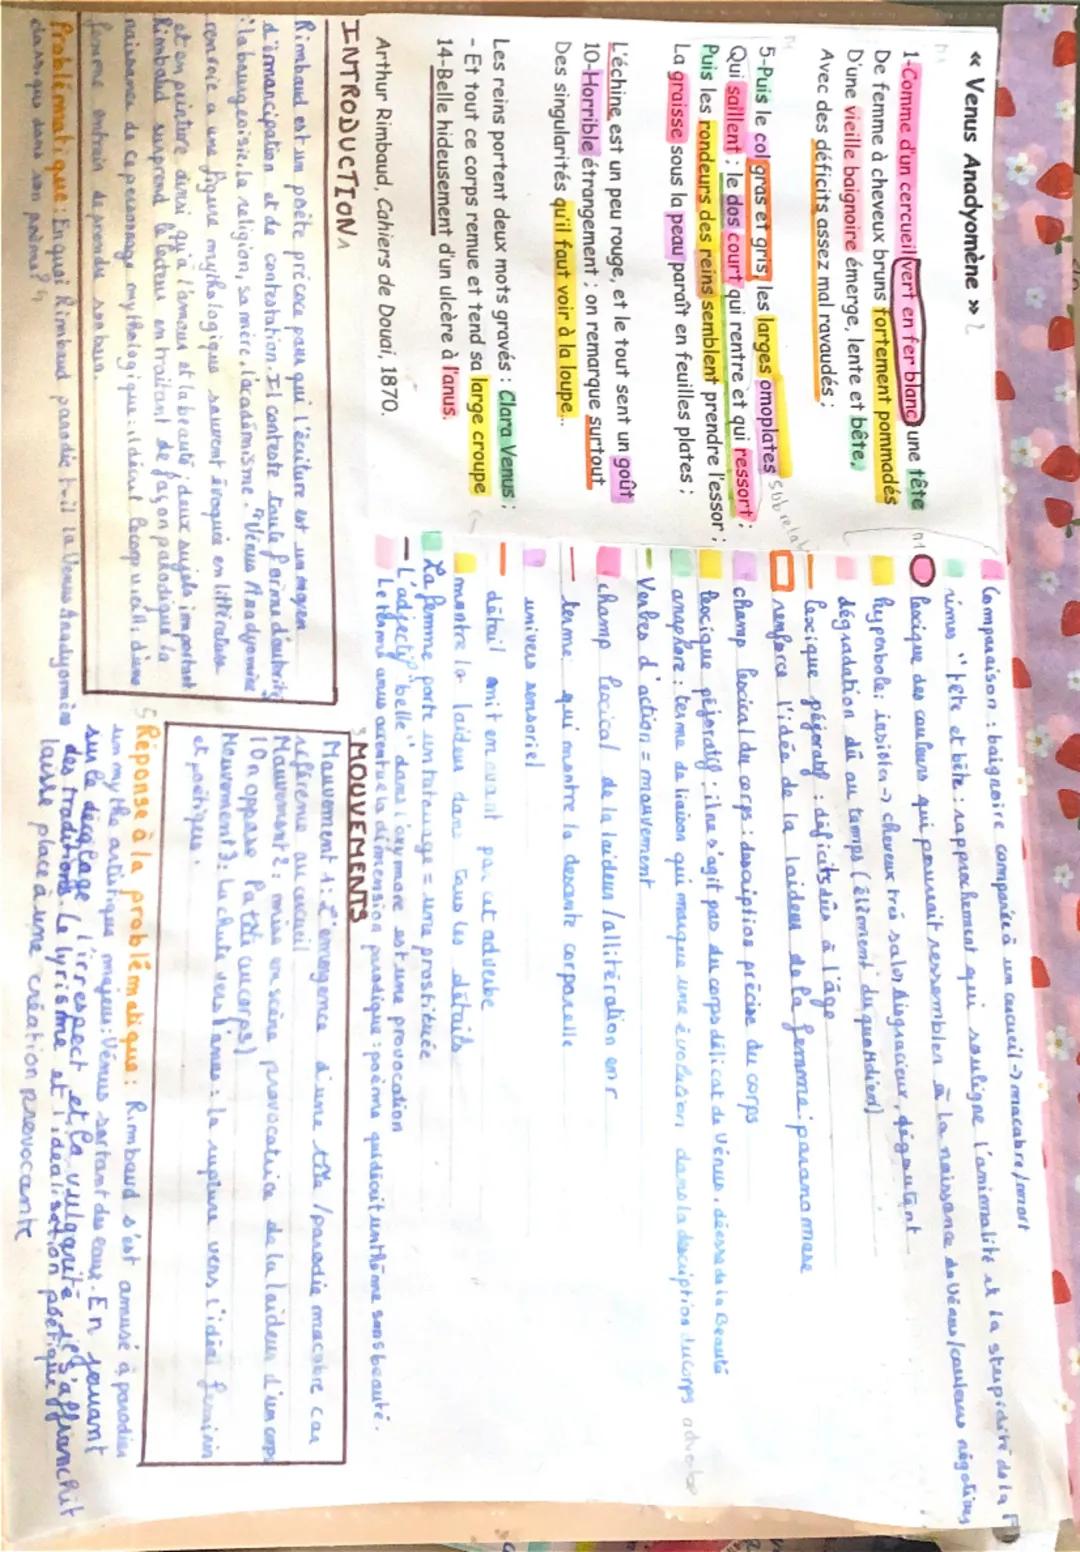 « Venus Anadyomène »
1-Comme d'un cercueil vert en fer blanc, une tête
De femme à cheveux bruns fortement pommadés
D'une vieille baignoire émerge, lente et bête,
Avec des déficits assez mal ravaudés ;
5-Puis le col gras et gris, les larges omoplates
Qui saillent ; le dos court qui rentre et qui ressort ;
Puis les rondeurs des reins semblent prendre l'essor ;
La graisse sous la peau paraît en feuilles plates ;
L'échine est un peu rouge, et le tout sent un goût
10-Horrible étrangement ; on remarque surtout
Des singularités qu'il faut voir à la loupe...
Les reins portent deux mots gravés : Clara Venus ;
- Et tout ce corps remue et tend sa large croupe
14-Belle hideusement d'un ulcère à l'anus.
Arthur Rimbaud, Cahiers de Douai, 1870.
INTRODUCTION
Rimbaud est un poète précoce pour qui l'écriture est un moyen
d'émancipation et de contestation. Il conteste toute forme d'autorité
: la bourgeoisie, la religion, sa mère, l'académisme. "Vénus Anadyomène
renvoie a une figure mythologique souvent évoquée en littérature
et en peinture ainsi qu'à l'amour et la beauté ; deux sujets important
Rimbaud surprend le lecteur en traitant de façon parodique la
naissance de ce personnage mythologique : il décrit l'accueil d'une
femme entrain de prendre son bain.
Problématique : En quoi Rimbaud parodie t-il la Vénus Anadyomène
classique dans son poème ?
Comparaison : baignoire comparée à un cercueil -> macabre/mort
rimes "tête et bête : rapprochement qui souligne l'animalité et la stupidité de la F
lexique des couleurs qui pourrait ressembler à la naissance de Vénus/couleurs négatives
hyperbole : insister -> cheveux très sales, disgracieux, dégoutant
dégradation dû au temps (élément du quotidien)
lexique péjoratif : déficits dûs à l'âge
renforce l'idée de la laideur de la femme : paronomase
champ lexical du corps : description précise du corps
lexique péjoratif : il ne s'agit pas du corps délicat de Vénus, déesse de la Beauté
anaphore : terme de liaison qui marque une évolution dans la description du corps adverbe
Verbes d'action = mouvement
champ lexical de la laideur/allitération en r
terme qui montre la descente corporelle
univers sensoriel
détail mit en avant par cet adverbe
montre la laideur dans tous les détails
La femme porte un tatouage = une prostituée
L'adjectif "belle" dans l'oxymore est une provocation
Le terme anus accentue la dimension parodique : poème qui décrit un thème sans beauté.
MOUVEMENTS
Mouvement 1 : L'émergence d'une tête/parodie macabre car
référence au cercueil
Mouvement 2 : mise en scène provocatrice de la laideur d'un corps
(On oppose la tête au corps)
Mouvement 3 : La chute vers l'anus : la rupture vers l'idéal féminin
et poétique.
Réponse à la problématique : Rimbaud s'est amusé à parodier
un mythe artistique majeur : Vénus sortant des eaux. En jouant
sur le décalage, l'irrespect et la vulgarité, s'affranchit
des traditions. Le lyrisme et l'idéalisation poétique
laisse place à une création provocante